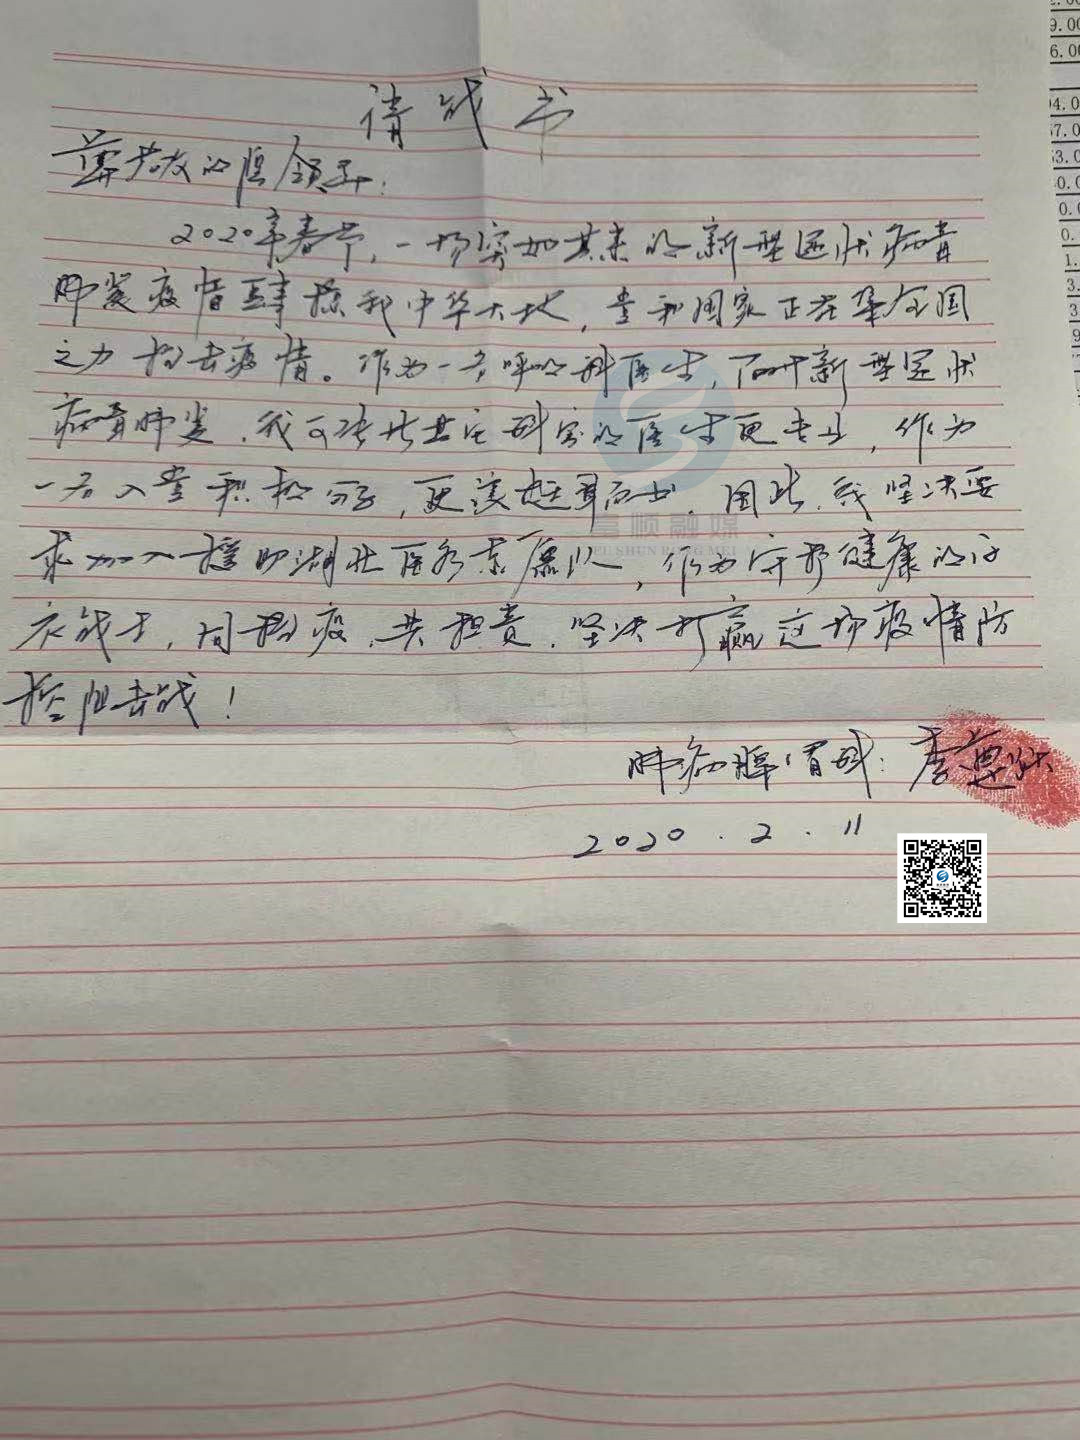 请战书
尊敬的医院领导:
2020年春节,一场突如其来的新型冠状病毒
肺炎疫情肆掠我中华大地,党和国家正在举全国
之力抗击疫情。作为一名呼吸科医生,面对新型冠状
病毒肺炎,我可能比其它科室的医生更专业,作为
一名入党积极分子,更该挺身而出,因此,我坚决要
求加入援助湖北医务志愿队,作为守护健康的白
衣战士,同抗疫,共担责,坚决打赢这场疫情防
控阻击战!
肺病脾胃科:李
2020.2.11
富顺融媒
FU SHUN RONG MEI
9.00
6.00